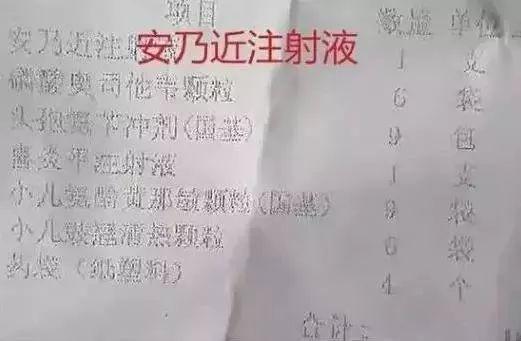 项目 数量 单位
安乃近注射液
安乃近注 1 支
磷酸奥司他韦颗粒 6 袋
头孢克节冲剂(国基) 9 包
喜炎平注射液 1 支
小儿氨酚黄那敏颗粒(国基) 9 袋
小儿豉翘清热颗粒 6 袋
药袋(纸塑料) 4 个
合计: